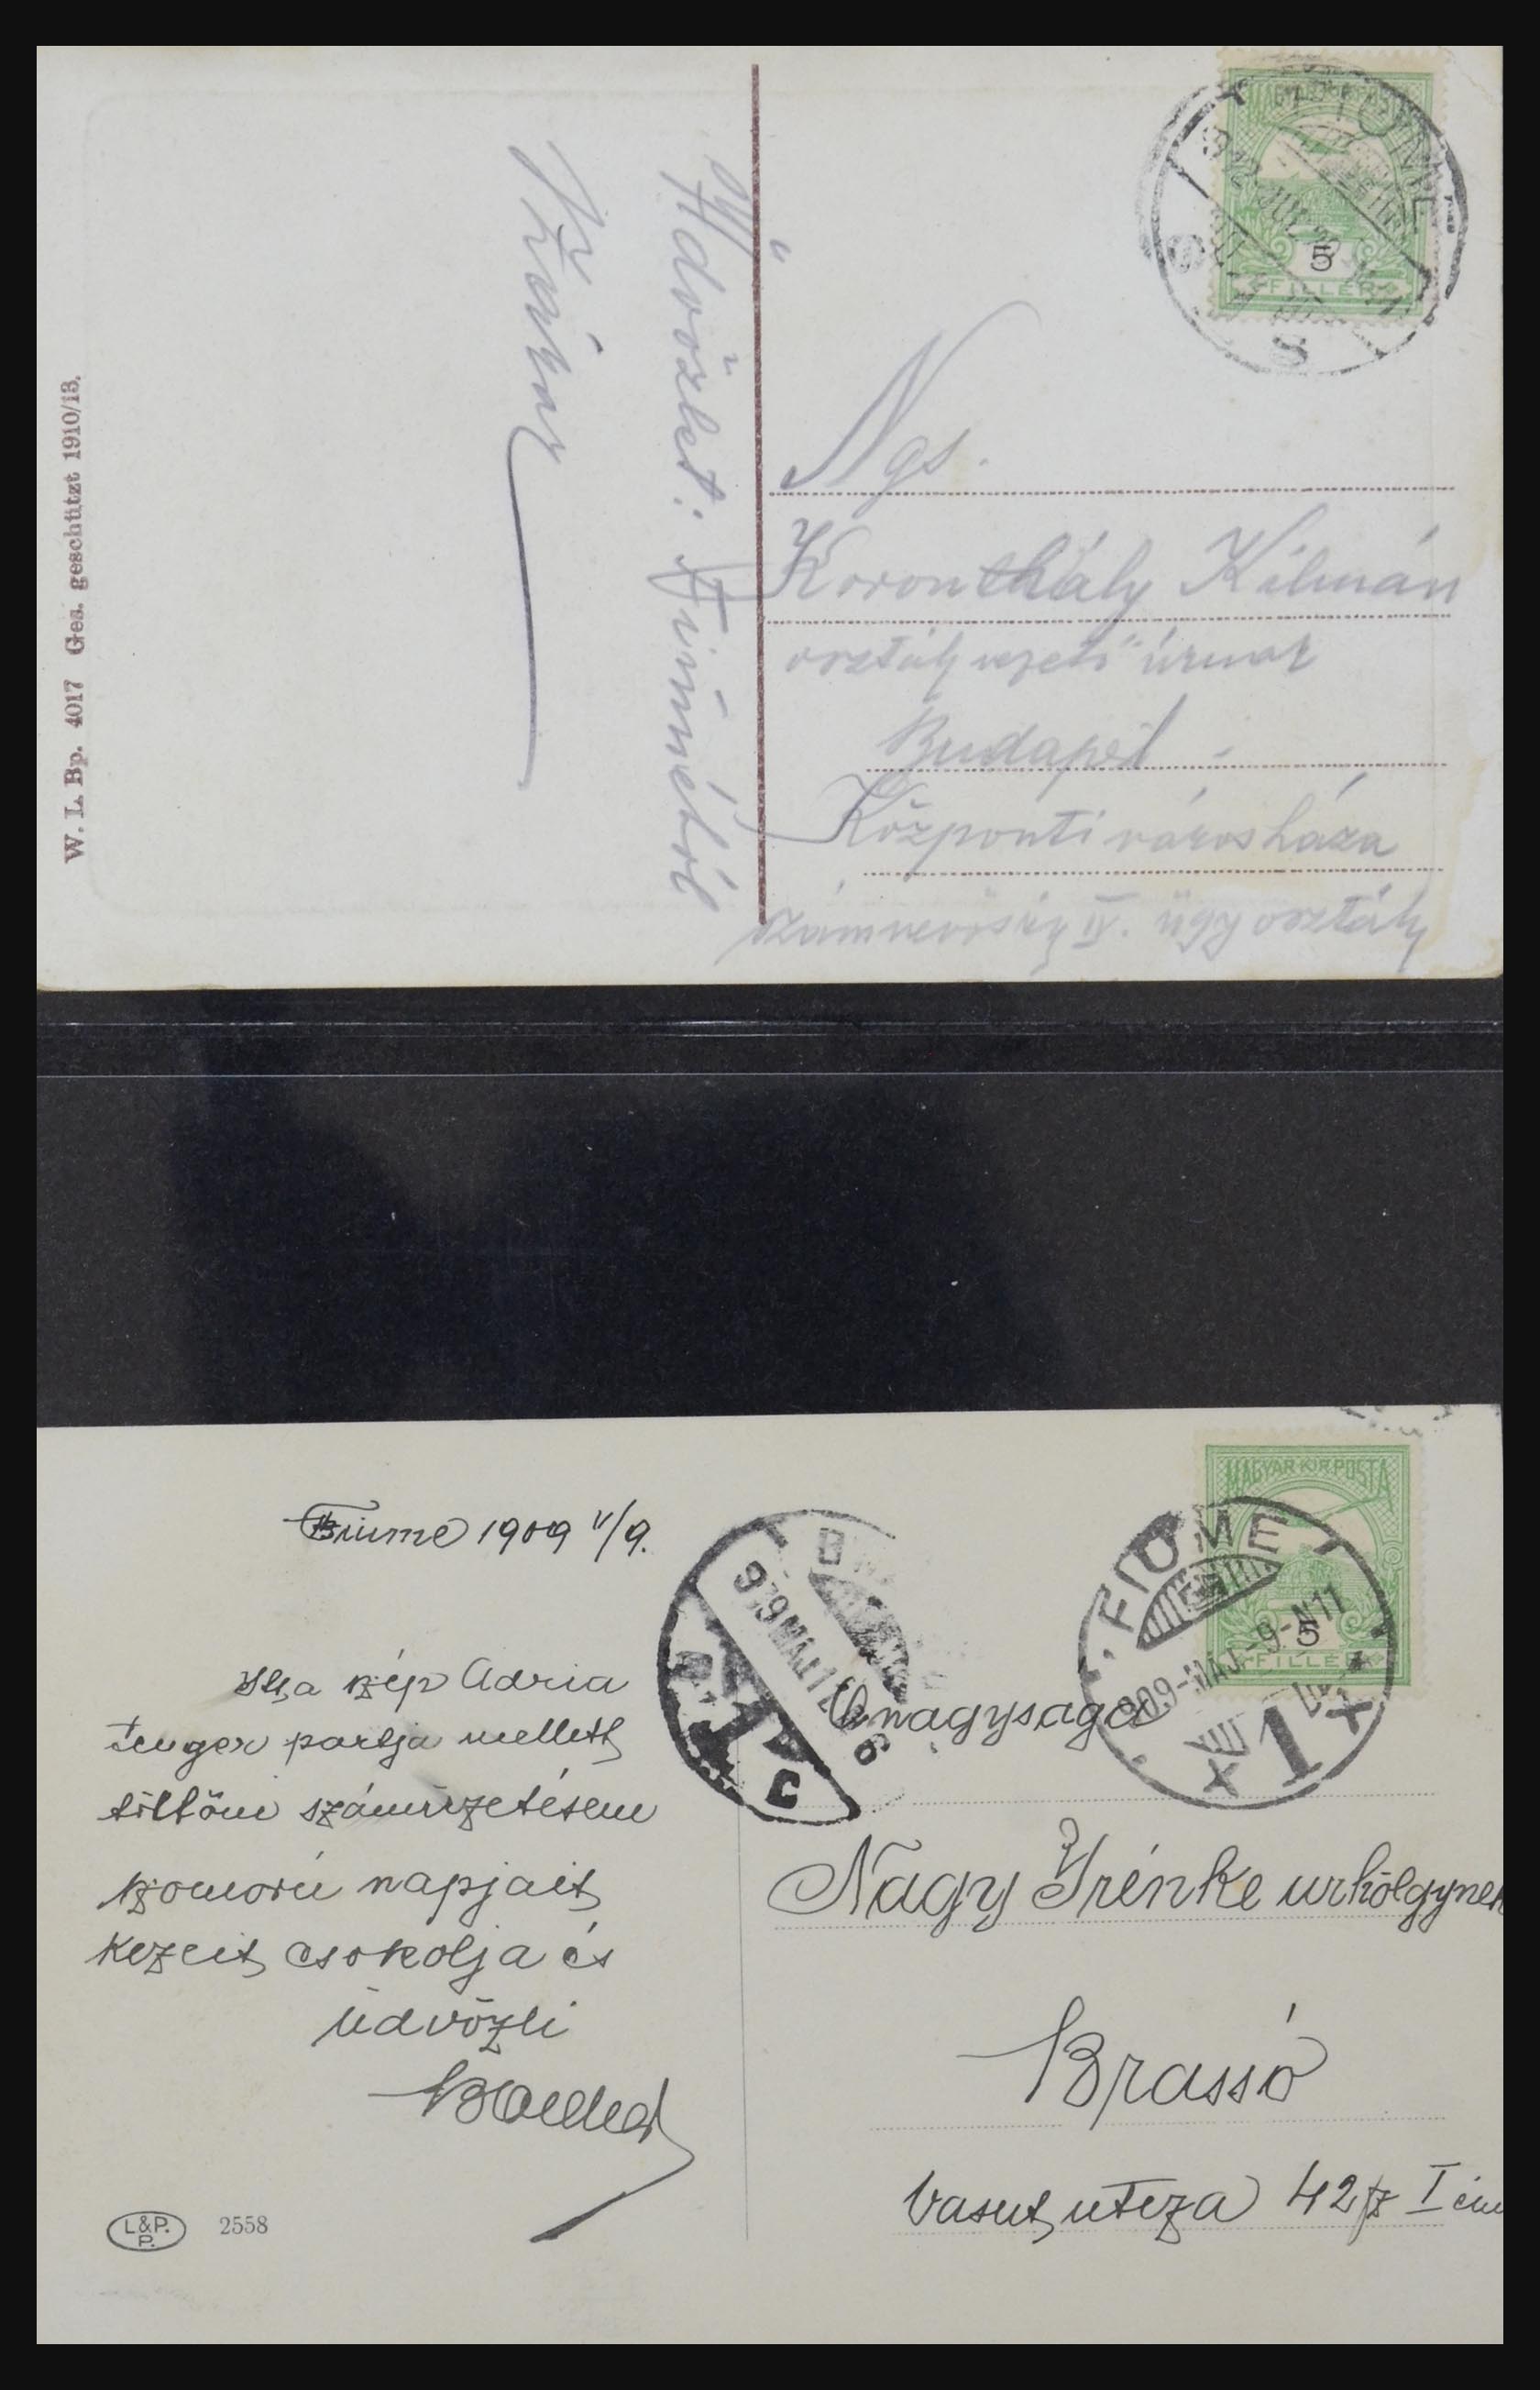 W. L. Bp. 4017 Ges. geschützt 1910/13.
Üdvözlet: Fiúméból
MAGYAR KIR. POSTA
FIUME
912 JUL.
5
FILLÉR
Ngs.
Koronthály Kálmán
osztályvezető úrnak
Budapest
Központi városháza
számvevőség IV. ügyosztály
Fiume 1909 V/9.
Itt, a szép Adria
tenger partja mellett
töltöm száműzetésem
szomorú napjait
Kezeit csokolja és
üdvözli
L.&P.
P.
2558
MAGYAR KIR. POSTA
5
FILLÉR
FIUME
909-MÁJ.-9.-N11
1
Őnagysága
Nagy Irénke urhölgynek
Brassó
Vasut uteza 42 sz I em